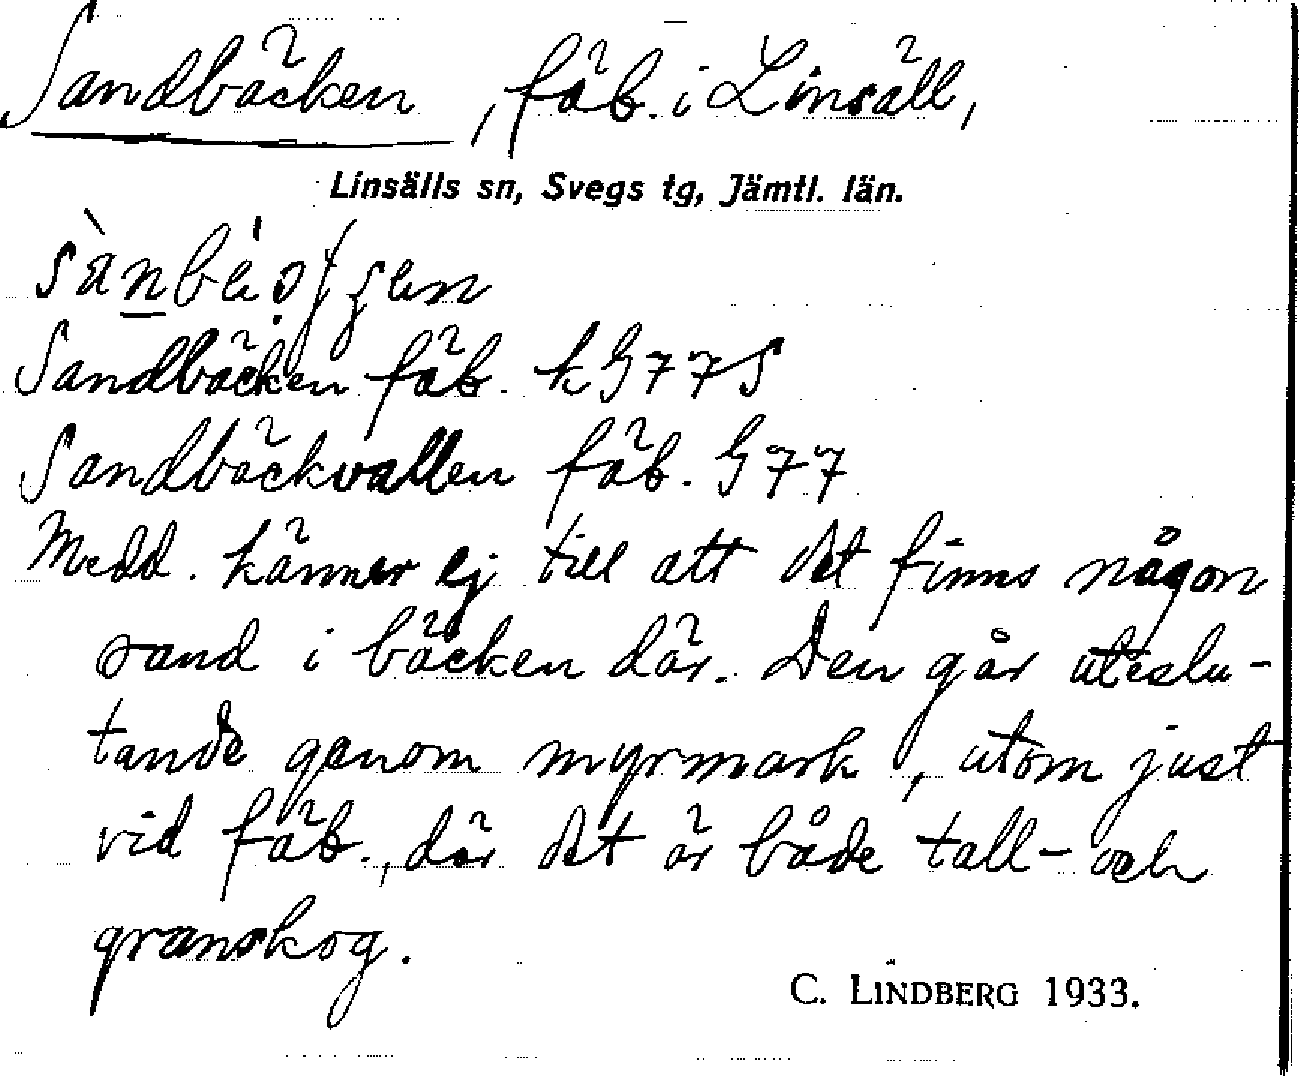 Sandbäcken, fäb. i Linsäll,
Linsälls sn, Svegs tg, Jämtl. län.
Sandbäcken fäb. k G 77 S
Sandbäckvallen fäb. G 77
Medd. känner ej till att det finns någon
sand i bäcken där. Den går uteslu-
tande genom myrmark, utom just
vid fäb., där det är både tall- och
granskog.
C. LINDBERG 1933.